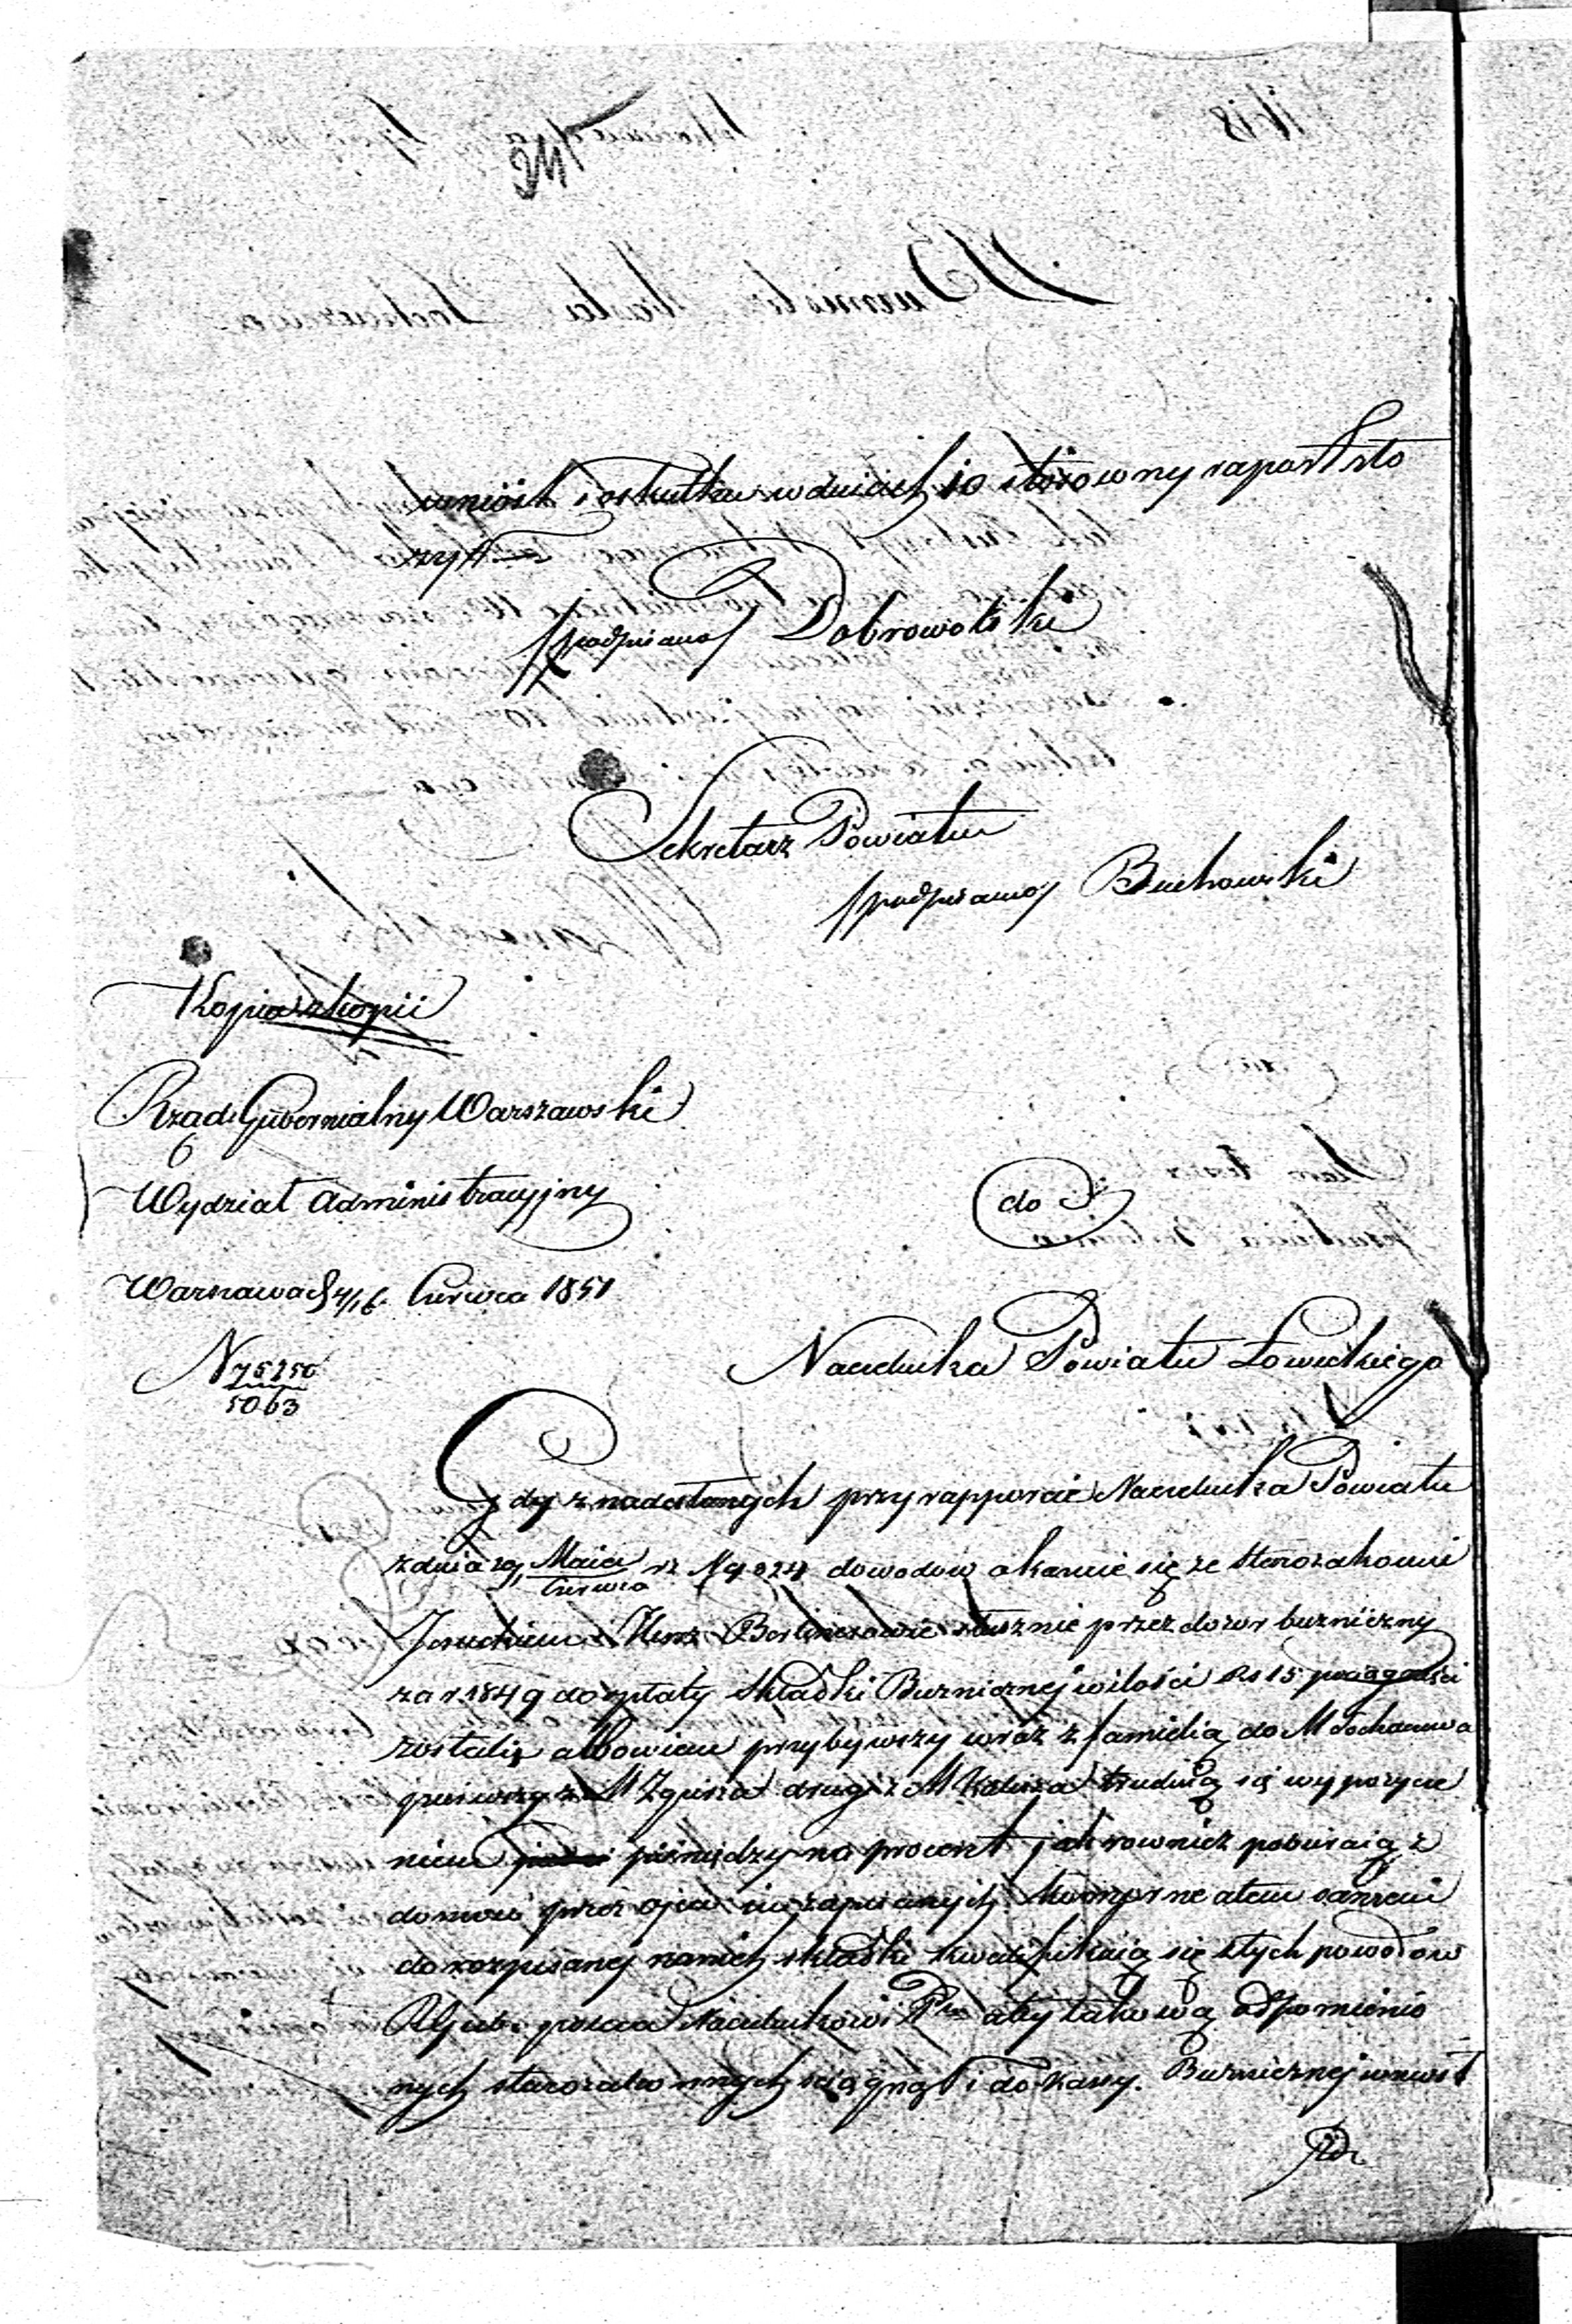 wniósł i o skutku w dniach 10 stosowny raport sto
żył
/podpisano/ Dobrowolski
Sekretarz Powiatu
/podpisano/ Buchowski
Kopia z kopii
Rząd Gubernialny Warszawski
Wydział Administracyjny
do
Warszawa d 4/16 Czerwca 1851
Naczelnika Powiatu Łowickiego
N 75250
5063
Gdy z nadesłanych przy rapporcie Naczelnika Powiatu
z dnia Maia
Czerwca rz N 9024 dowodow okazuie się że Starozakonni
i Hersz Berlinerowie słusznie przez dozor bużniczny
za r 1849 do opłaty składki Bużnicznej w ilości Rs 15 pociągnięci
zostali, albowiem przybywszy wraz z familią do M Sochaczewa
pierwszy z M Zgierza drugi z M Kalisza trudnią się wypożycze
niem pieniędzy na procent jak rownież pobieraią z
domow przez ojca ich zapisanych atem samem
do rozpisanej na nich składki kwalifikuią się z tych powodow
R Gub. poleca Naczelnikowi Ptu aby takową od pomienio
nych starozakonnych ściągnął i do Kassy Bużnicznej wniosł